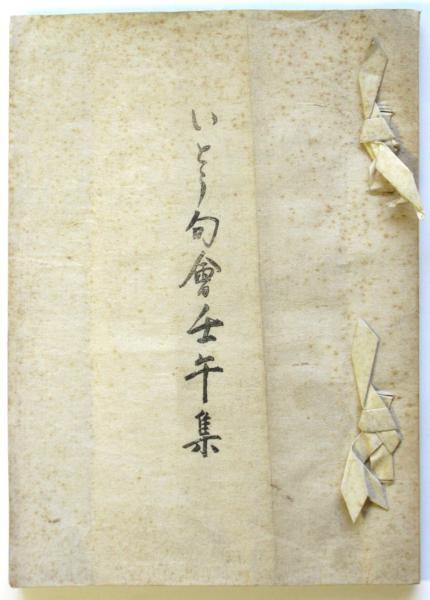 いとう句會壬午集